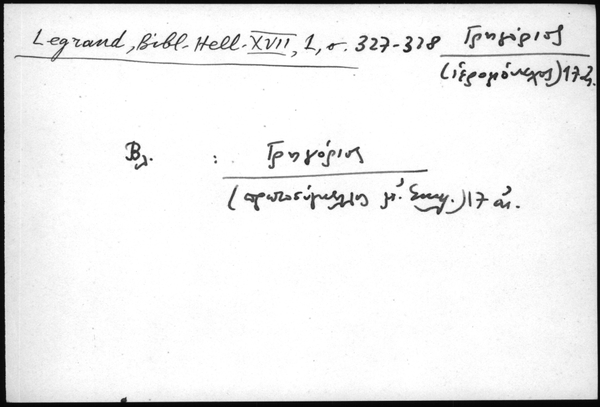 Legrand, Bibl. Hell. XVII, 1, σ. 327-328 Γρηγόριος
(ἱερομόναχος) 17 αἰ.
Βλ. : Γρηγόριος
(πρωτοσύγκελλος μ. Ἐκκλ.) 17 αἰ.